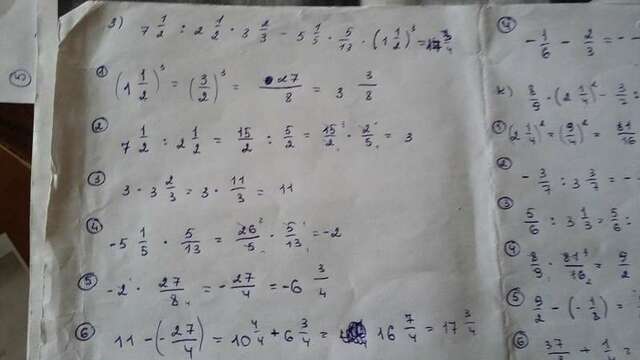 з) 7 1/2 : 2 1/2 · 3 2/3 - 5 1/5 · 5/13 · (1 1/2)³ = 17 3/4
① (1 1/2)³ = (3/2)³ = 27/8 = 3 3/8
② 7 1/2 : 2 1/2 = 15/2 : 5/2 = 15/2 · 2/5 = 3
③ 3 · 3 2/3 = 3 · 11/3 = 11
④ -5 1/5 · 5/13 = 26/5 · 5/13 = -2
⑤ -2 · 27/8 = -27/4 = -6 3/4
⑥ 11 - (-27/4) = 10 4/4 + 6 3/4 = 16 7/4 = 17 3/4
④
-1/6 - 2/3 = -
к) 8/9 · (2 1/4)² - 3/7 :
① (2 1/4)² = (9/4)² = 81/16
② -3/7 : 3 3/7 = -
③ 5/6 : 3 1/3 = 5/6 :
④ 8/9 · 81/16 = 9/2
⑤ 9/2 - (-1/8) =
⑥ 37 + 1/4 =
5